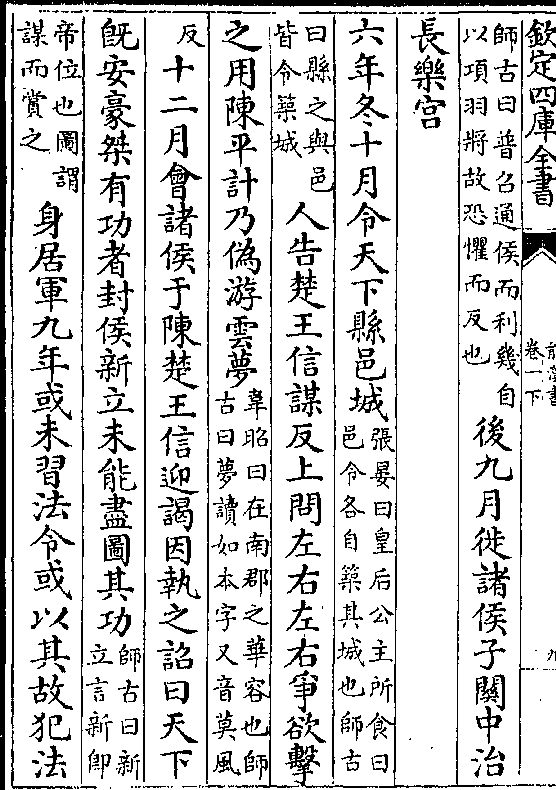 欽定四庫全書
前漢書
卷一下
九
師古曰普召通侯而利幾自
以項羽將故恐懼而反也
後九月徙諸侯子關中治
長樂宮
六年冬十月令天下縣邑城
張晏曰皇后公主所食曰
邑令各自築其城也師古
曰縣之與邑
皆令築城
人告楚王信謀反上問左右左右爭欲擊
之用陳平計乃僞游雲夢
韋昭曰在南郡之華容也師
古曰夢讀如本字又音莫風
反
十二月會諸侯于陳楚王信迎謁因執之詔曰天下
既安豪桀有功者封侯新立未能盡圖其功
師古曰新
立言新卽
帝位也圖謂
謀而賞之
身居軍九年或未習法令或以其故犯法